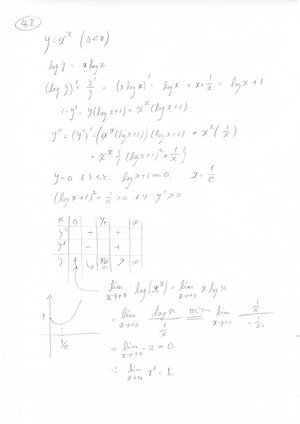 48
y = x^x (0<x)
log y = x log x
(log y)' = y'/y = (x log x)' = log x + x・1/x = log x + 1
∴ y' = y(log x+1) = x^x (log x+1)
y'' = (y')' = (x^x (log x+1))(log x+1) + x^x (1/x)
= x^x { (log x+1)^2 + 1/x }
log x+1=0. x = 1/e
(log x+1)^2 + 1/x > 0 y''>0
x 0 1/e ∞
y'' + +
y' - +
y 1 ∞
lim x→+0 log(x^x) = lim x→+0 x log x
= lim x→+0 log x / (1/x) = lim x→+0 (1/x) / (-1/x^2)
= lim x→+0 -x = 0
∴ lim x→+0 x^x = 1
1
1/e